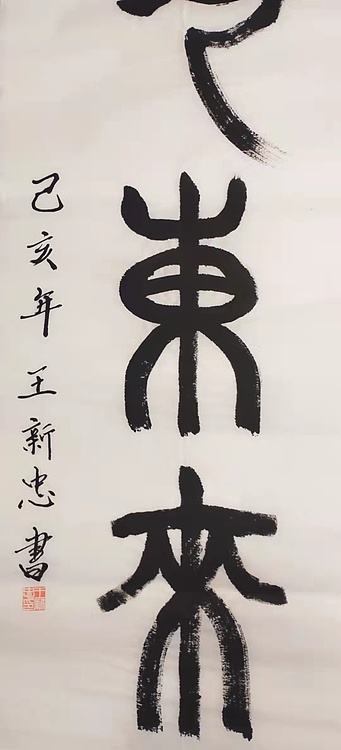 東來
己亥年王新忠書